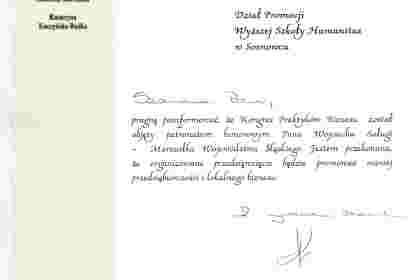 Katarzyna
Kuczyńska-Budka
Dział Promocji
Wyższej Szkoły Humanitas
w Sosnowcu
Szanowna Pani,
pragnę poinformować, że Kongres Praktyków Biznesu został
objęty patronatem honorowym Pana Wojciecha Saługi
- Marszałka Województwa Śląskiego. Jestem przekonana,
że organizowane przedsięwzięcie będzie promować rozwój
przedsiębiorczości i lokalnego biznesu.
Z